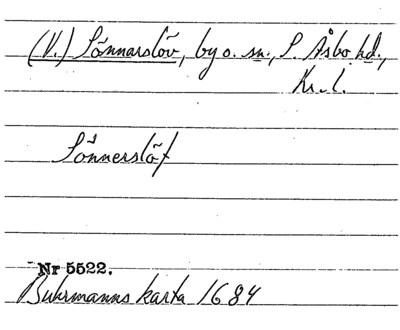 (V.) Sönnarslöv, by o. sn., S. Åsbo hd.,
Kr. l.
Sönnerslöf
Nr 5522.
Buhrmanns karta 1684